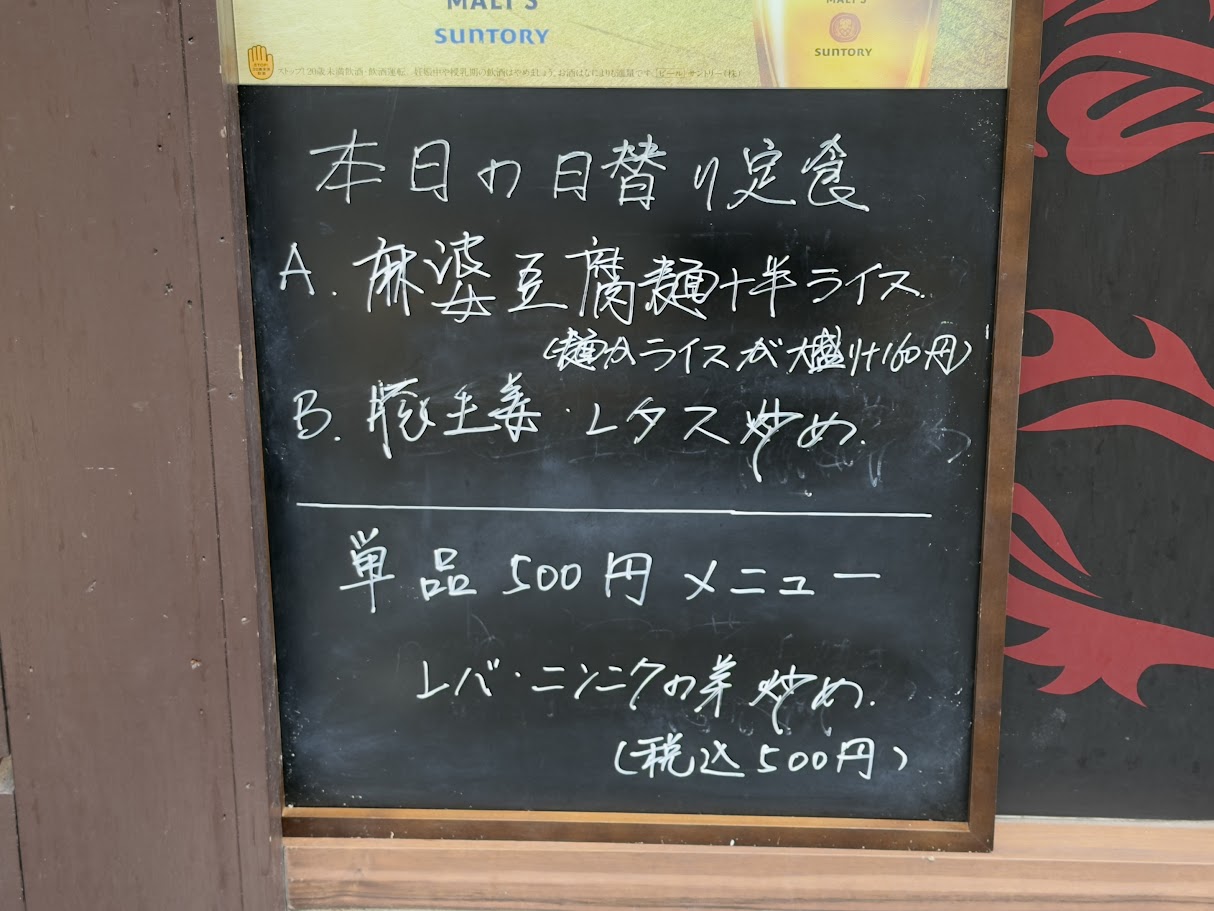 MALT'S
SUNTORY
MALT'S
SUNTORY
ストップ!20歳未満飲酒・飲酒運転。妊娠中や授乳期の飲酒はやめましょう。お酒はなによりも適量です。ビール サントリー(株)
本日の日替り定食
A. 麻婆豆腐麺+半ライス.
(麺かライスが大盛り+160円)
B. 豚生姜・レタス炒め.
単品500円メニュー
レバ・ニンニクの芽炒め.
(税込500円)